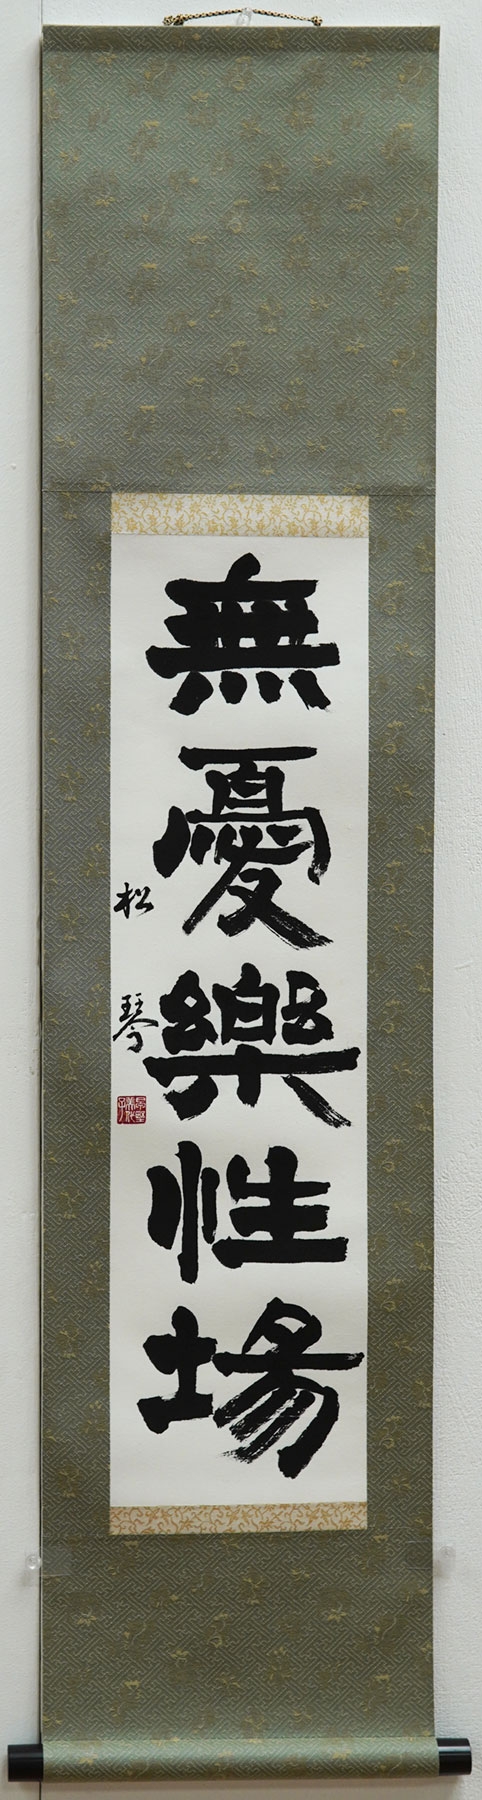 無憂樂性場
松琴